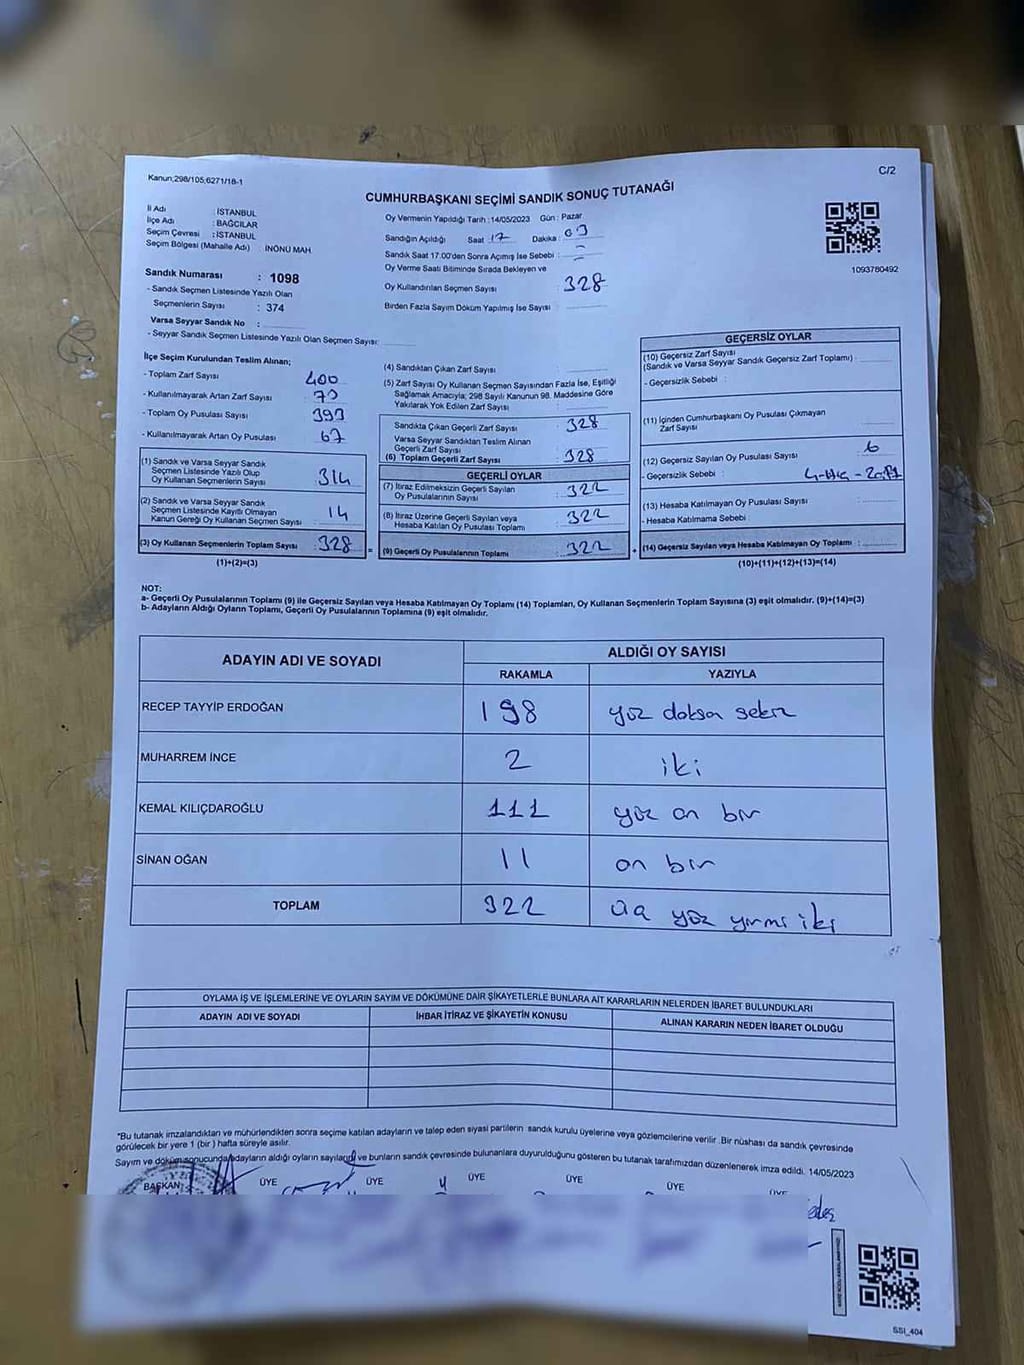 Kanun;298/105,6271/18-1
C/2
CUMHURBAŞKANI SEÇİMİ SANDIK SONUÇ TUTANAĞI
İl Adı : İSTANBUL
İlçe Adı : BAĞCILAR
Seçim Çevresi : İSTANBUL
Seçim Bölgesi (Mahalle Adı) : İNÖNÜ MAH.
Sandık Numarası : 1098
- Sandık Seçmen Listesinde Yazılı Olan
Seçmenlerin Sayısı : 374
Varsa Seyyar Sandık No :
- Seyyar Sandık Seçmen Listesinde Yazılı Olan Seçmen Sayısı:
Oy Vermenin Yapıldığı Tarih :14/05/2023 Gün : Pazar
Sandığın Açıldığı Saat 17 Dakika :
Sandık Saat 17.00'den Sonra Açımış İse Sebebi :
Oy Verme Saati Bitiminde Sırada Bekleyen ve
Oy Kullandırılan Seçmen Sayısı : 328
Birden Fazla Sayım Döküm Yapılmış İse Sayısı
1093780492
İlçe Seçim Kurulundan Teslim Alınan;
- Toplam Zarf Sayısı 400
- Kullanılmayarak Artan Zarf Sayısı
- Toplam Oy Pusulası Sayısı
- Kullanılmayarak Artan Oy Pusulası 67
(1) Sandık ve Varsa Seyyar Sandık
Seçmen Listesinde Yazılı Olup
Oy Kullanan Seçmenlerin Sayısı : 314
(2) Sandık ve Varsa Seyyar Sandık
Seçmen Listesinde Kayıtlı Olmayan
Kanun Gereği Oy Kullanan Seçmen Sayısı : 14
(3) Oy Kullanan Seçmenlerin Toplam Sayısı : 328
(1)+(2)=(3)
(4) Sandıktan Çıkan Zarf Sayısı
(5) Zarf Sayısı Oy Kullanan Seçmen Sayısından Fazla İse, Eşitliği
Sağlamak Amacıyla; 298 Sayılı Kanunun 98. Maddesine Göre
Yakılarak Yok Edilen Zarf Sayısı :
Sandıkta Çıkan Geçerli Zarf Sayısı : 328
Varsa Seyyar Sandıktan Teslim Alınan
Geçerli Zarf Sayısı
(6) Toplam Geçerli Zarf Sayısı : 328
GEÇERLİ OYLAR
(7) İtiraz Edilmeksizin Geçerli Sayılan
Oy Pusulalarının Sayısı : 322
(8) İtiraz Üzerine Geçerli Sayılan veya
Hesaba Katılan Oy Pusulası Toplamı : 322
= (9) Geçerli Oy Pusulalarının Toplamı : 322
GEÇERSİZ OYLAR
(10) Geçersiz Zarf Sayısı
(Sandık ve Varsa Seyyar Sandık Geçersiz Zarf Toplamı) :
- Geçersizlik Sebebi :
(11) İçinden Cumhurbaşkanı Oy Pusulası Çıkmayan
Zarf Sayısı
(12) Geçersiz Sayılan Oy Pusulası Sayısı : 6
- Geçersizlik Sebebi :
(13) Hesaba Katılmayan Oy Pusulası Sayısı :
- Hesaba Katılmama Sebebi :
+ (14) Geçersiz Sayılan veya Hesaba Katılmayan Oy Toplamı :
(10)+(11)+(12)+(13)=(14)
NOT:
a- Geçerli Oy Pusulalarının Toplamı (9) ile Geçersiz Sayılan veya Hesaba Katılmayan Oy Toplamı (14) Toplamları, Oy Kullanan Seçmenlerin Toplam Sayısına (3) eşit olmalıdır. (9)+(14)=(3)
b- Adayların Aldığı Oyların Toplamı, Geçerli Oy Pusulalarının Toplamına (9) eşit olmalıdır.
ADAYIN ADI VE SOYADI
ALDIĞI OY SAYISI
RAKAMLA YAZIYLA
RECEP TAYYİP ERDOĞAN 198 yüz doksa sekiz
MUHARREM İNCE 2 iki
KEMAL KILIÇDAROĞLU 111 yüz on bir
SİNAN OĞAN 11 on bir
TOPLAM 322 yüz yirmi iki
OYLAMA İŞ VE İŞLEMLERİNE VE OYLARIN SAYIM VE DÖKÜMÜNE DAİR ŞİKAYETLERLE BUNLARA AİT KARARLARIN NELERDEN İBARET BULUNDUKLARI
ADAYIN ADI VE SOYADI İHBAR İTİRAZ VE ŞİKAYETİN KONUSU ALINAN KARARIN NEDEN İBARET OLDUĞU
*Bu tutanak imzalandıktan ve mühürlendikten sonra seçime katılan adayların ve talep eden siyasi partilerin sandık kurulu üyelerine veya gözlemcilerine verilir .Bir nüshası da sandık çevresinde
görülecek bir yere 1 (bir ) hafta süreyle asılır.
Sayım ve döküm sonucunda adayların aldığı oyların sayıları ve bunların sandık çevresinde bulunanlara duyurulduğunu gösteren bu tutanak tarafımızdan düzenlenerek imza edildi. 14/05/2023
BAŞKAN ÜYE ÜYE ÜYE ÜYE ÜYE ÜYE
SSI_404